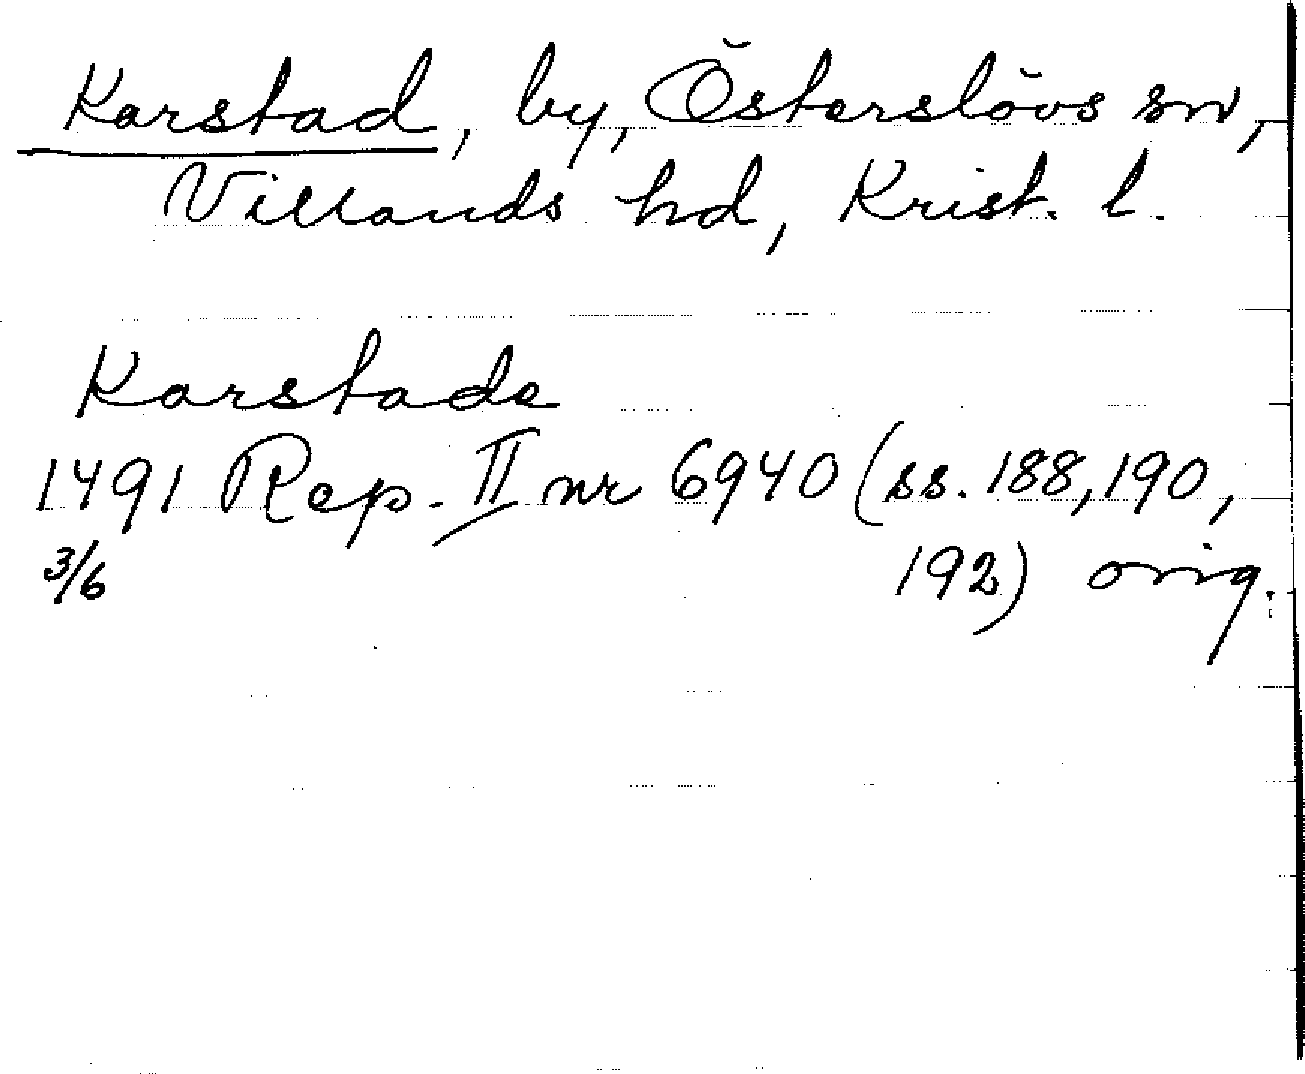 Karstad, by, Österslövs sn,
Villands hd, Krist. l.
Karstade
1491 Rep. II nr 6940 (ss. 188, 190,
3/6 192) orig.